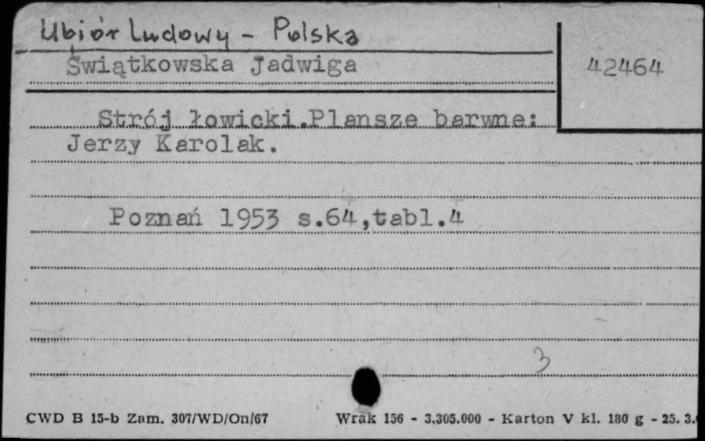 Ubiór Ludowy - Polska
Świątkowska Jadwiga
42464
Strój łowicki.Plansze barwne:
Jerzy Karolak.
Poznań 1953 s.64,tabl.4
3
CWD B 15-b Zam. 307/WD/On/67 Wrak 156 - 3.305.000 - Karton V kl. 180 g - 25. 3.